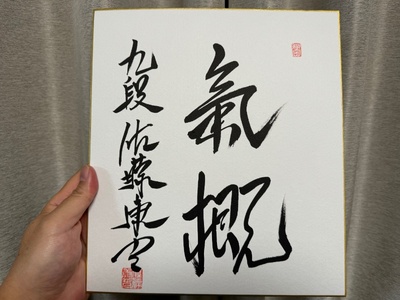 氣概
九段 佐藤康光